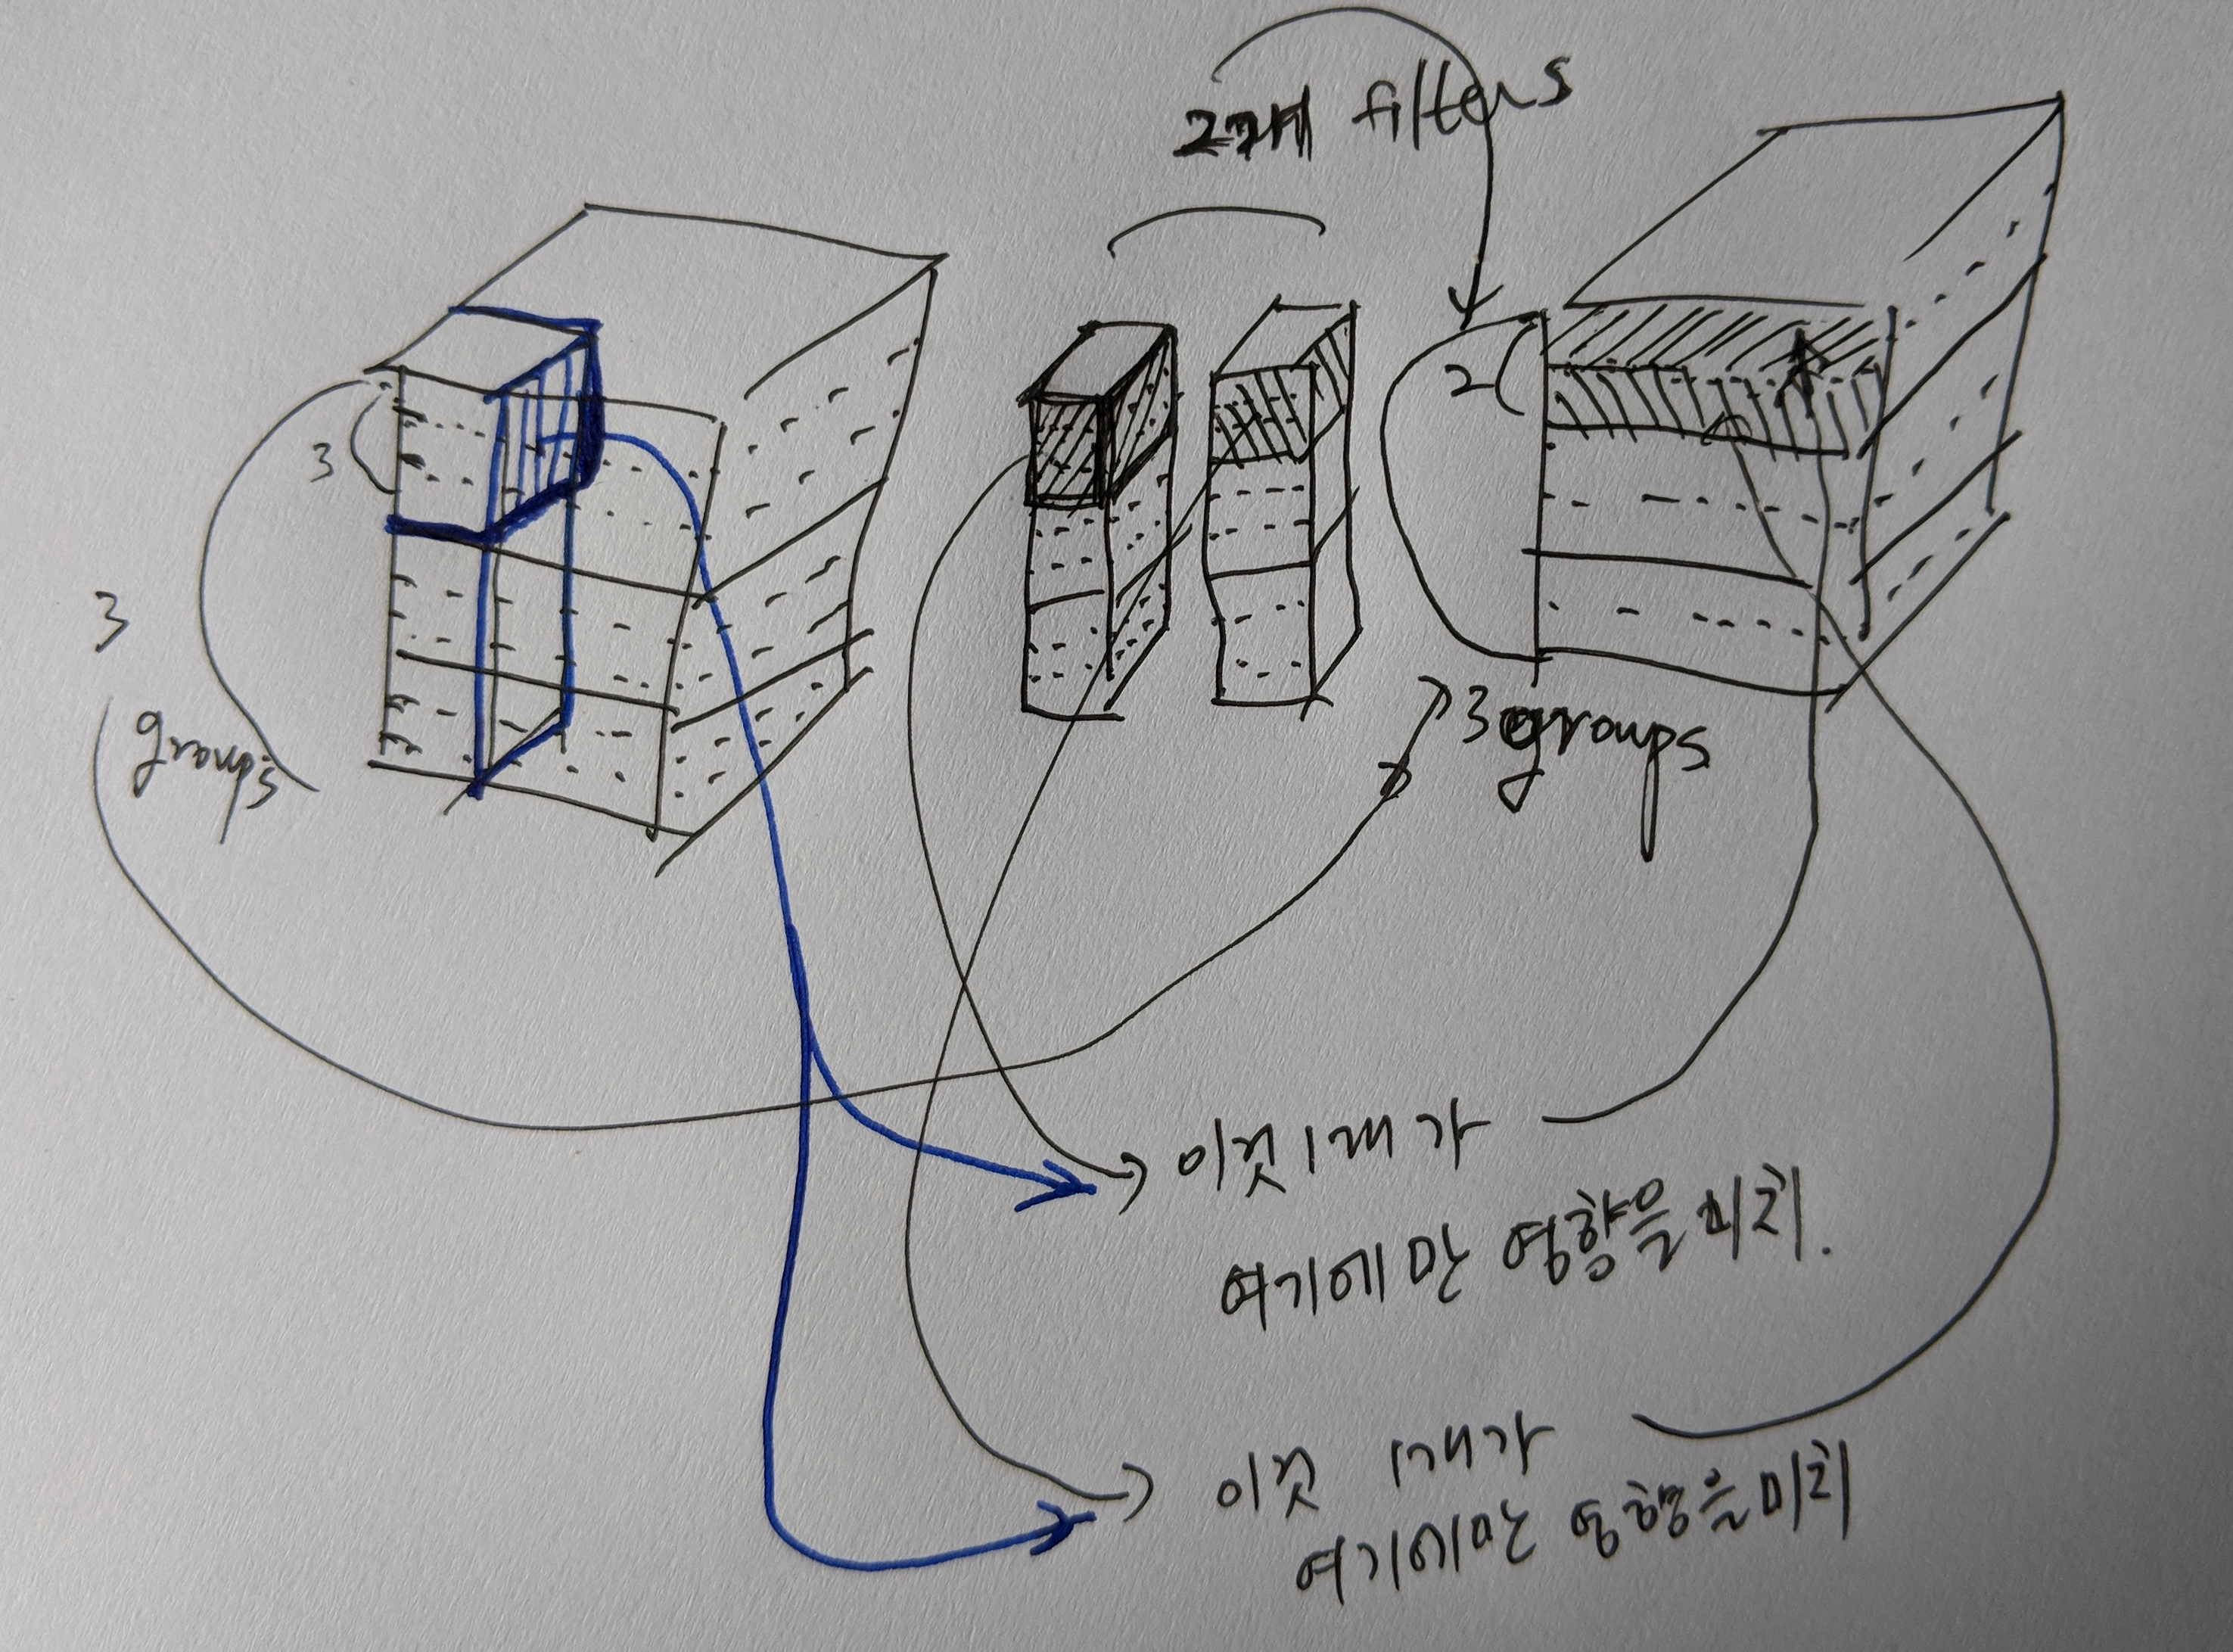 2개 filters
3
2
3
groups
3 groups
이것 1개가
여기에만 영향을 미치.
이것 1개가
여기에만 영향을 미치